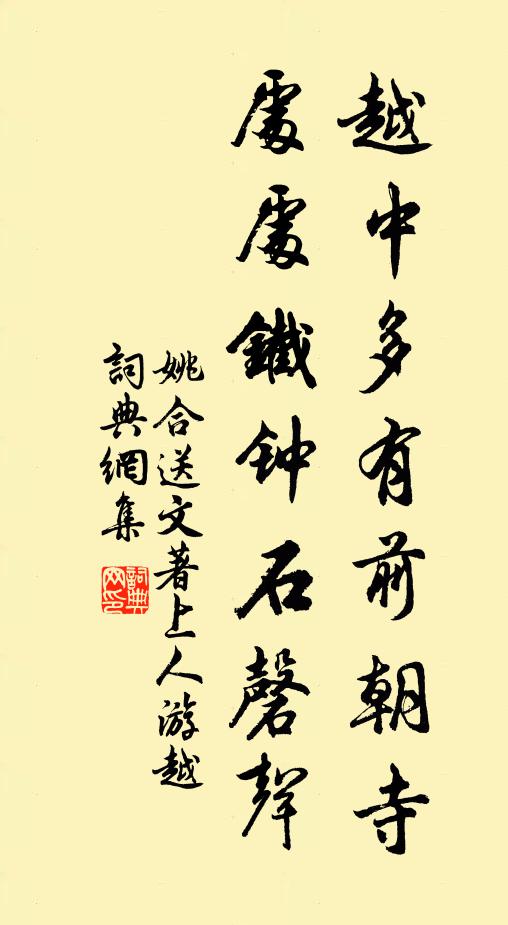 越中多有前朝寺
處處鐵钟石磬聲
姚合送文著上人游越
詞典網集
詞典網印